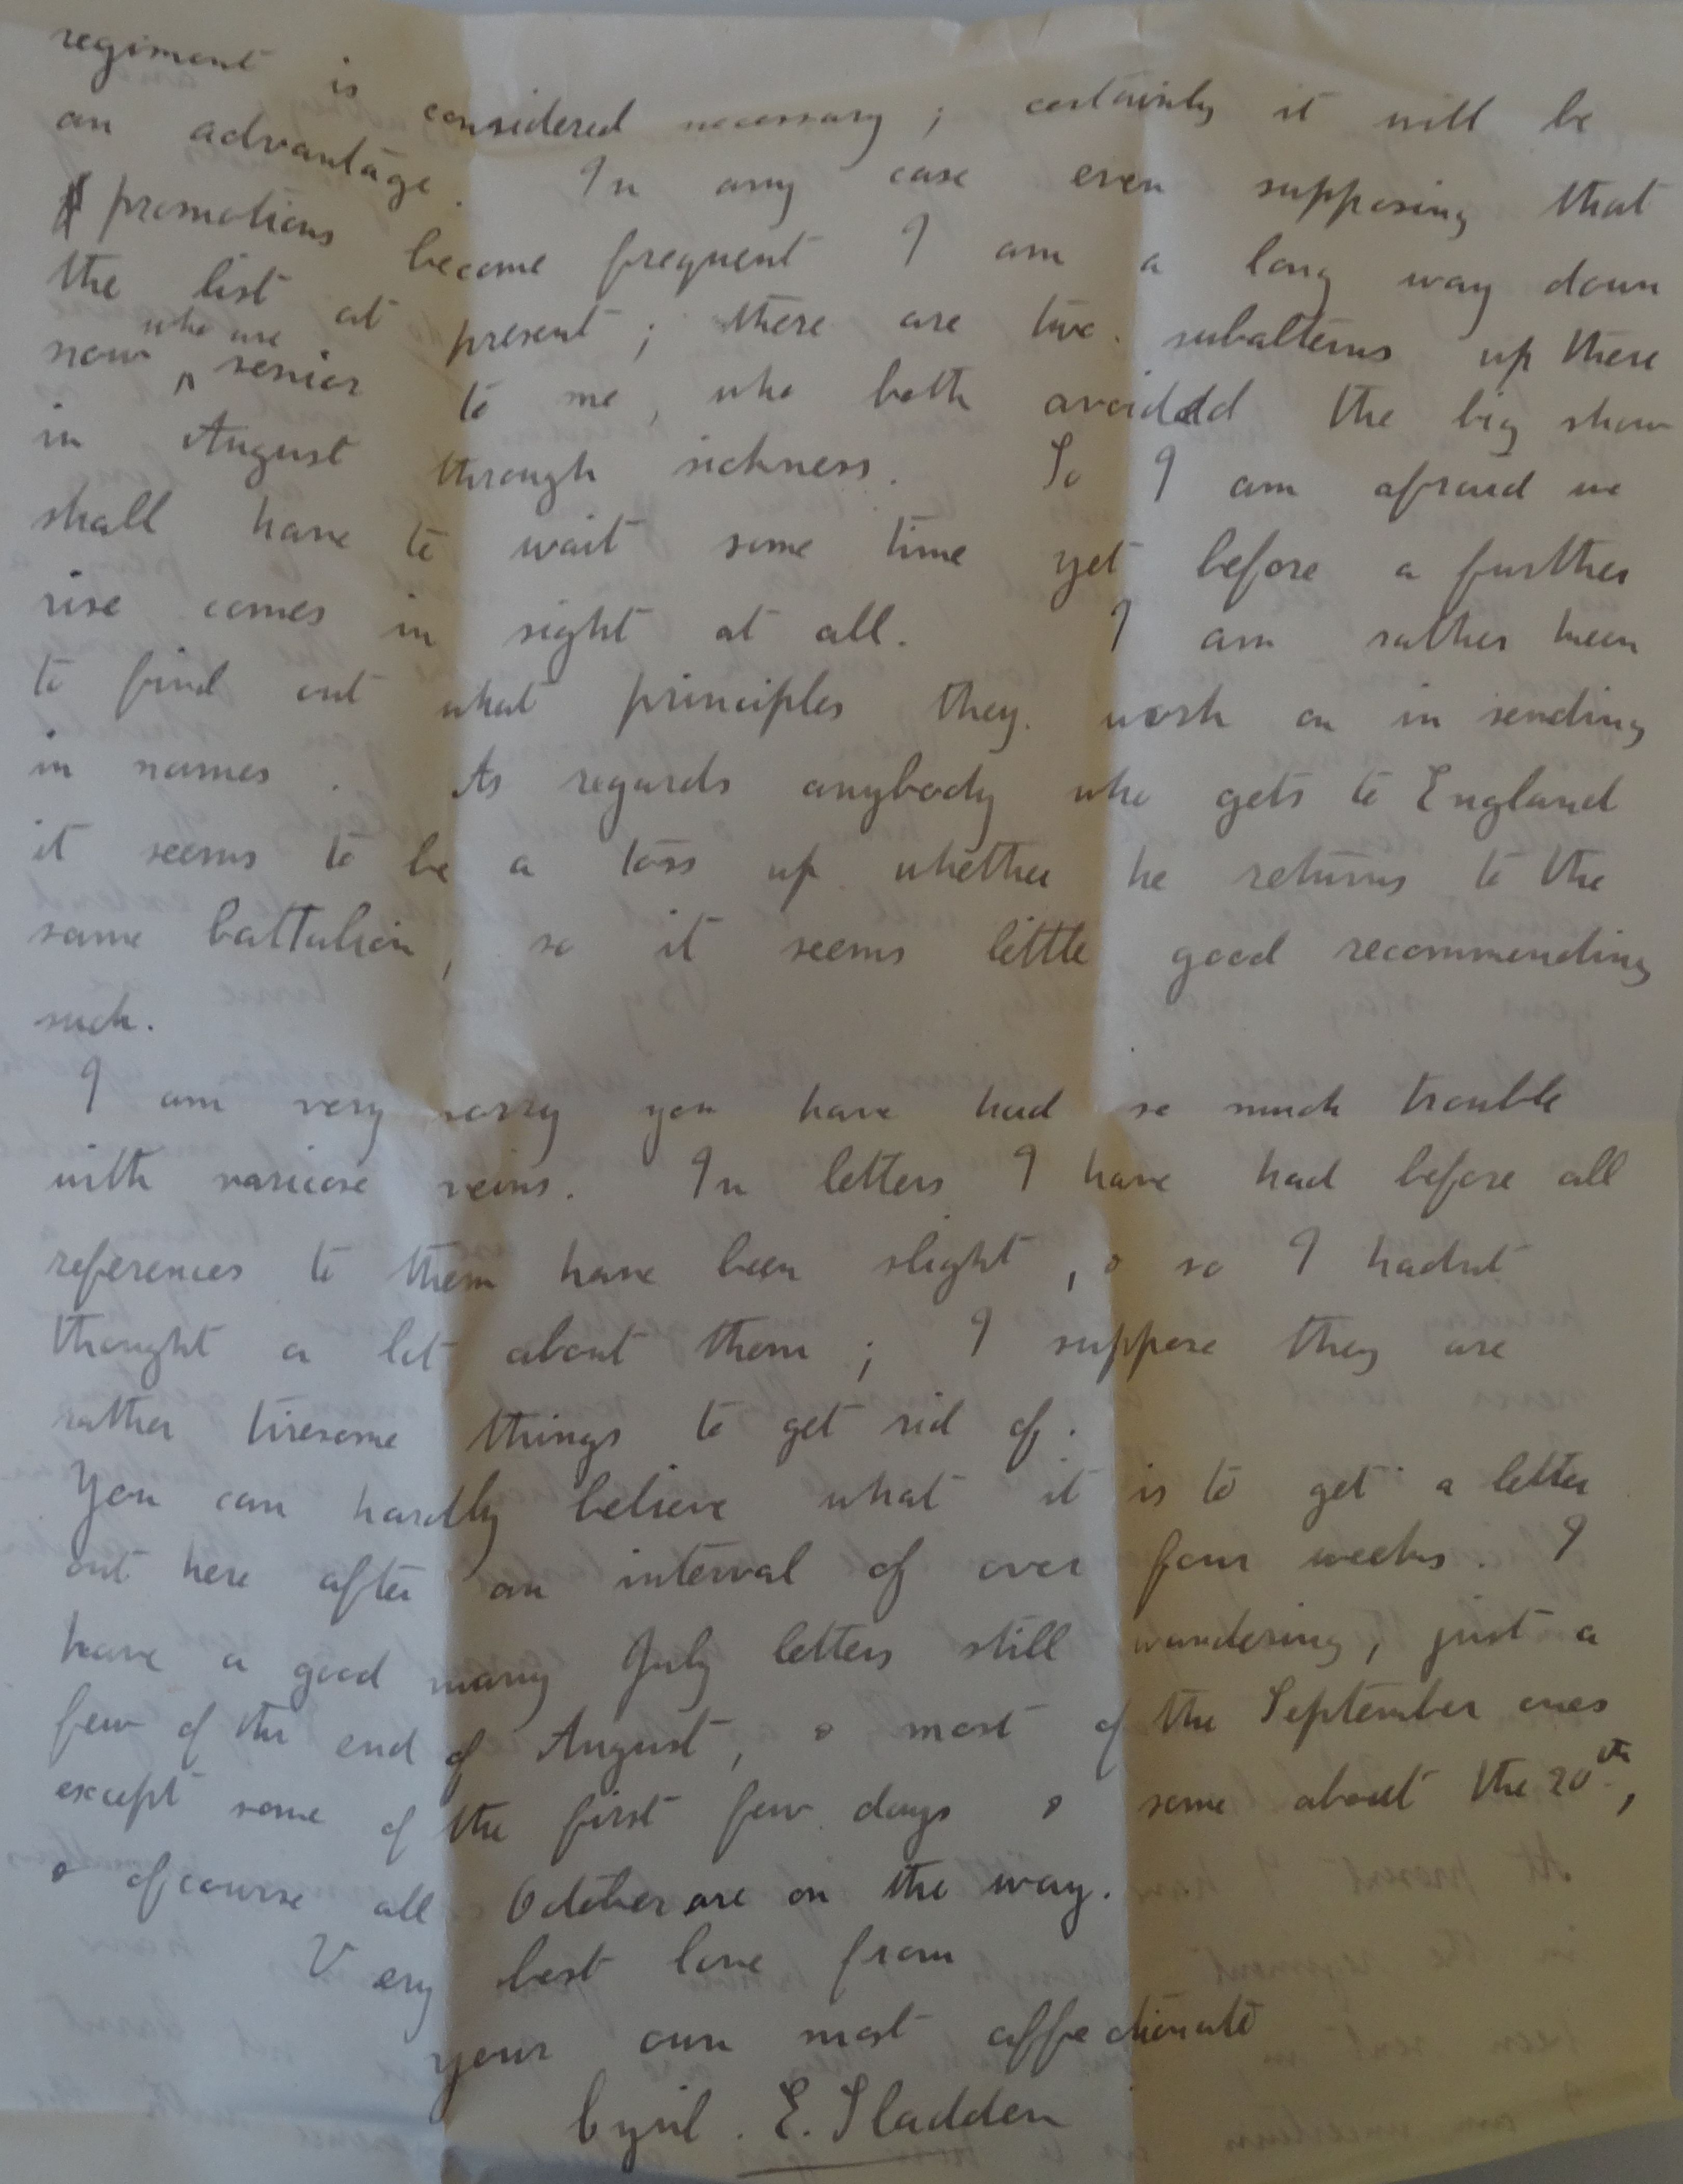 regiment is considered necessary; certainly it will be
an advantage. In any case even supposing that
promotions become frequent I am a long way down
the list at present; there are two subalterns up there
now who are senior to me, who both avoided the big show
in August through sickness. So I am afraid we
shall have to wait some time yet before a further
rise comes in sight at all. I am rather keen
to find out what principles they work on in sending
in names. As regards anybody who gets to England
it seems to be a toss up whether he returns to the
same battalion, so it seems little good recommending
such.
I am very sorry you have had so much trouble
with varicose veins. In letters I have had before all
references to them have been slight, & so I hadnt
thought a lot about them; I suppose they are
rather tiresome things to get rid of.
You can hardly believe what it is to get a letter
out here after an interval of over four weeks. I
have a good many July letters still wandering, just a
few of the end of August, & most of the September ones
except some of the first few days & some about the 20th,
& ofcourse all October are on the way.
Very best love from
your own most affectionate
Cyril. E. Sladden